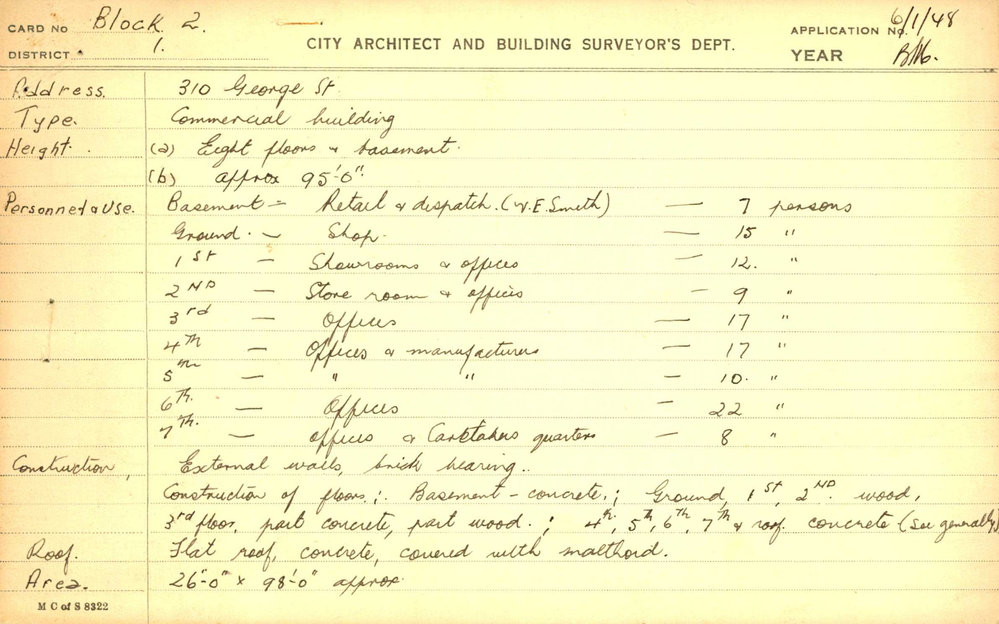 CARD No Block 2.
DISTRICT 1.
CITY ARCHITECT AND BUILDING SURVEYOR'S DEPT.
APPLICATION No. 6/1/48
YEAR
Address. 310 George St.
Type. Commercial building
Height. (a) Eight floors & basement.
(b) approx 95'-0".
Personnel & Use. Basement — Retail & dispatch. (W.E. Smith) — 7 persons
Ground. — Shop. — 15 "
1st — Showrooms & offices — 12. "
2ND — Store room & offices — 9 "
3rd — Offices — 17 "
4th — Offices & manufacturers — 17 "
5th — " " — 10. "
6th. — Offices — 22 "
7th. — Offices & Caretakers quarters — 8 "
Construction, External walls, brick bearing..
Construction of floors: Basement - concrete,; Ground, 1st, 2ND. wood,
3rd floor, part concrete, part wood.; 4th, 5th, 6th, 7th & roof. concrete (See generally)
Roof. Flat roof, concrete, covered with malthoid.
Area. 26'-0" x 98'-0" approx.
M C of S 8322